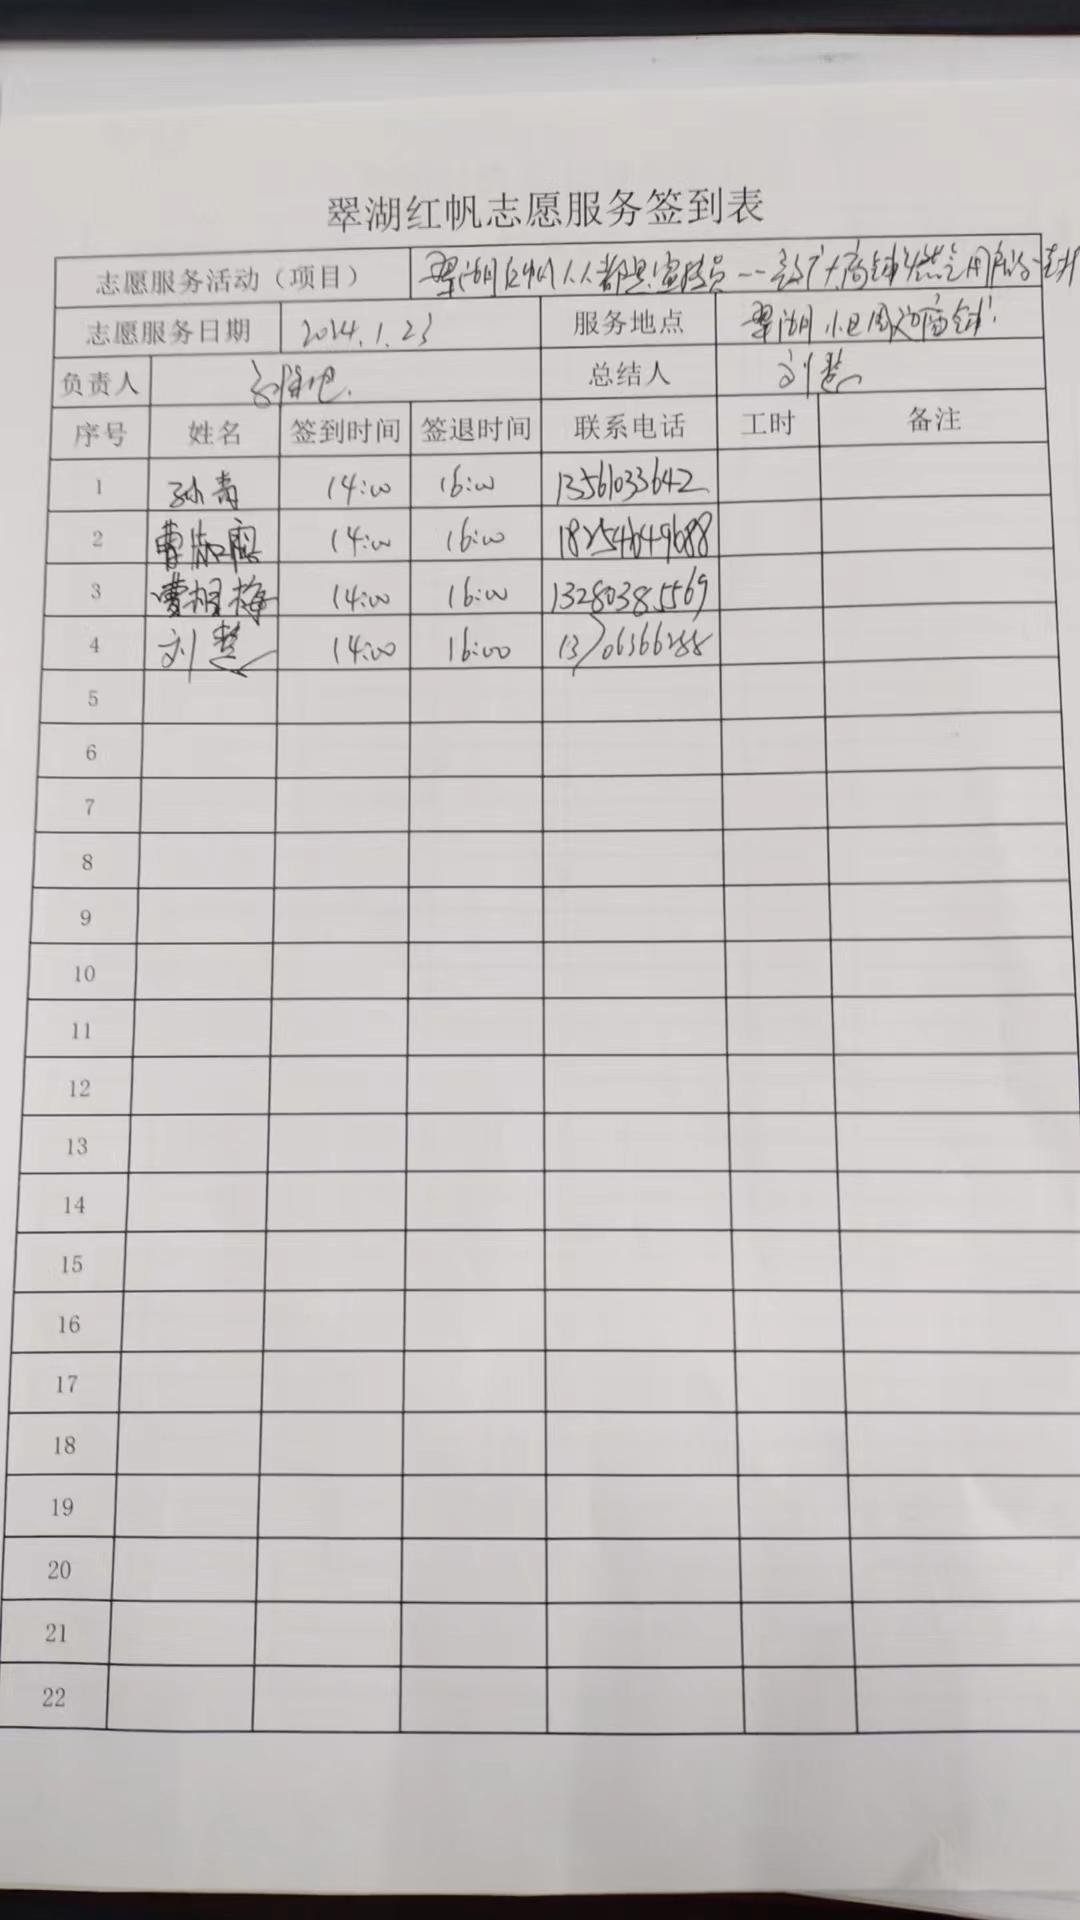 翠湖红帆志愿服务签到表
志愿服务活动（项目） 翠湖红帆人人都是宣传员--致广大商铺燃气用户的一封
志愿服务日期 2024.1.23 服务地点 翠湖小区周边商铺
负责人 总结人 刘慧
序号 姓名 签到时间 签退时间 联系电话 工时 备注
1 孙青 14:00 16:00 13561033642
2 曹淑霞 14:00 16:00 18254649688
3 曹相梅 14:00 16:00 13280385569
4 刘慧 14:00 16:00 13706366288
5
6
7
8
9
10
11
12
13
14
15
16
17
18
19
20
21
22